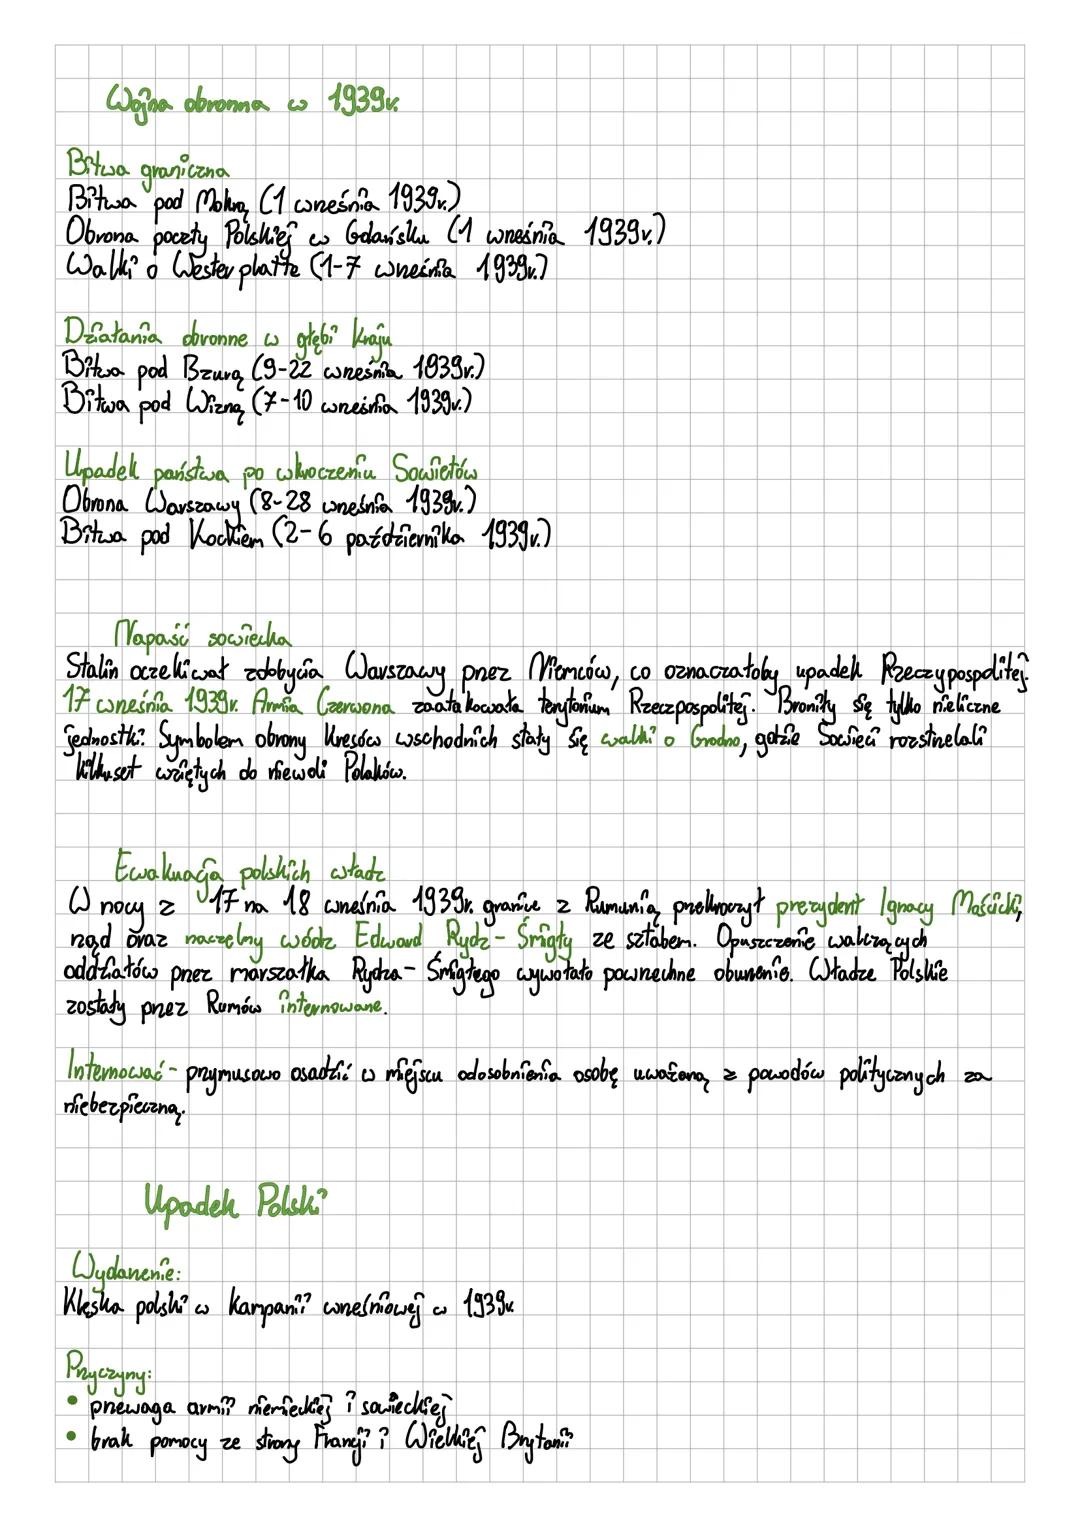 Wojna obronna w 1939r.
Bitwa graniczna
Bitwa pod Mokrą (1 września 1939r.)
Obrona poczty Polskiej w Gdańsku (1 września 1939r.)
Walki o Westerplatte (1-7 września 1939r.)
Działania obronne w głębi kraju
Bitwa pod Bzurą (9-22 września 1939r.)
Bitwa pod Wizną (7-10 września 1939r.)
Upadek państwa po wkroczeniu Sowietów
Obrona Warszawy (8-28 września 1939r.)
Bitwa pod Kockiem (2-6 października 1939r.)
Napaść sowiecka
Stalin oczekiwał zdobycia Warszawy przez Niemców, co oznaczałoby upadek Rzeczypospolitej.
17 września 1939r. Armia Czerwona zaatakowała terytorium Rzeczpospolitej. Broniły się tylko nieliczne
jednostki. Symbolem obrony Kresów wschodnich stały się walki o Grodno, gdzie Sowieci rozstrzelali
kilkuset wziętych do niewoli Polaków.
Ewakuacja polskich władz
W nocy z 17 na 18 września 1939r. granice z Rumunią przekroczył prezydent Ignacy Mościcki,
rząd oraz naczelny wódz Edward Rydz-Śmigły ze sztabem. Opuszczenie walczących
oddziałów przez marszałka Rydza-Śmigłego wywołało powszechne oburzenie. Władze Polskie
zostały przez Rumów internowane.
Internować - przymusowo osadzić w miejscu odosobnienia osobę uważaną z powodów politycznych za
niebezpieczną.
Upadek Polski
Wydarzenie:
Klęska polski w kampanii wrześniowej w 1939r.
Przyczyny:
• przewaga armii niemieckiej i sowieckiej
• brak pomocy ze strony Francji i Wielkiej Brytanii